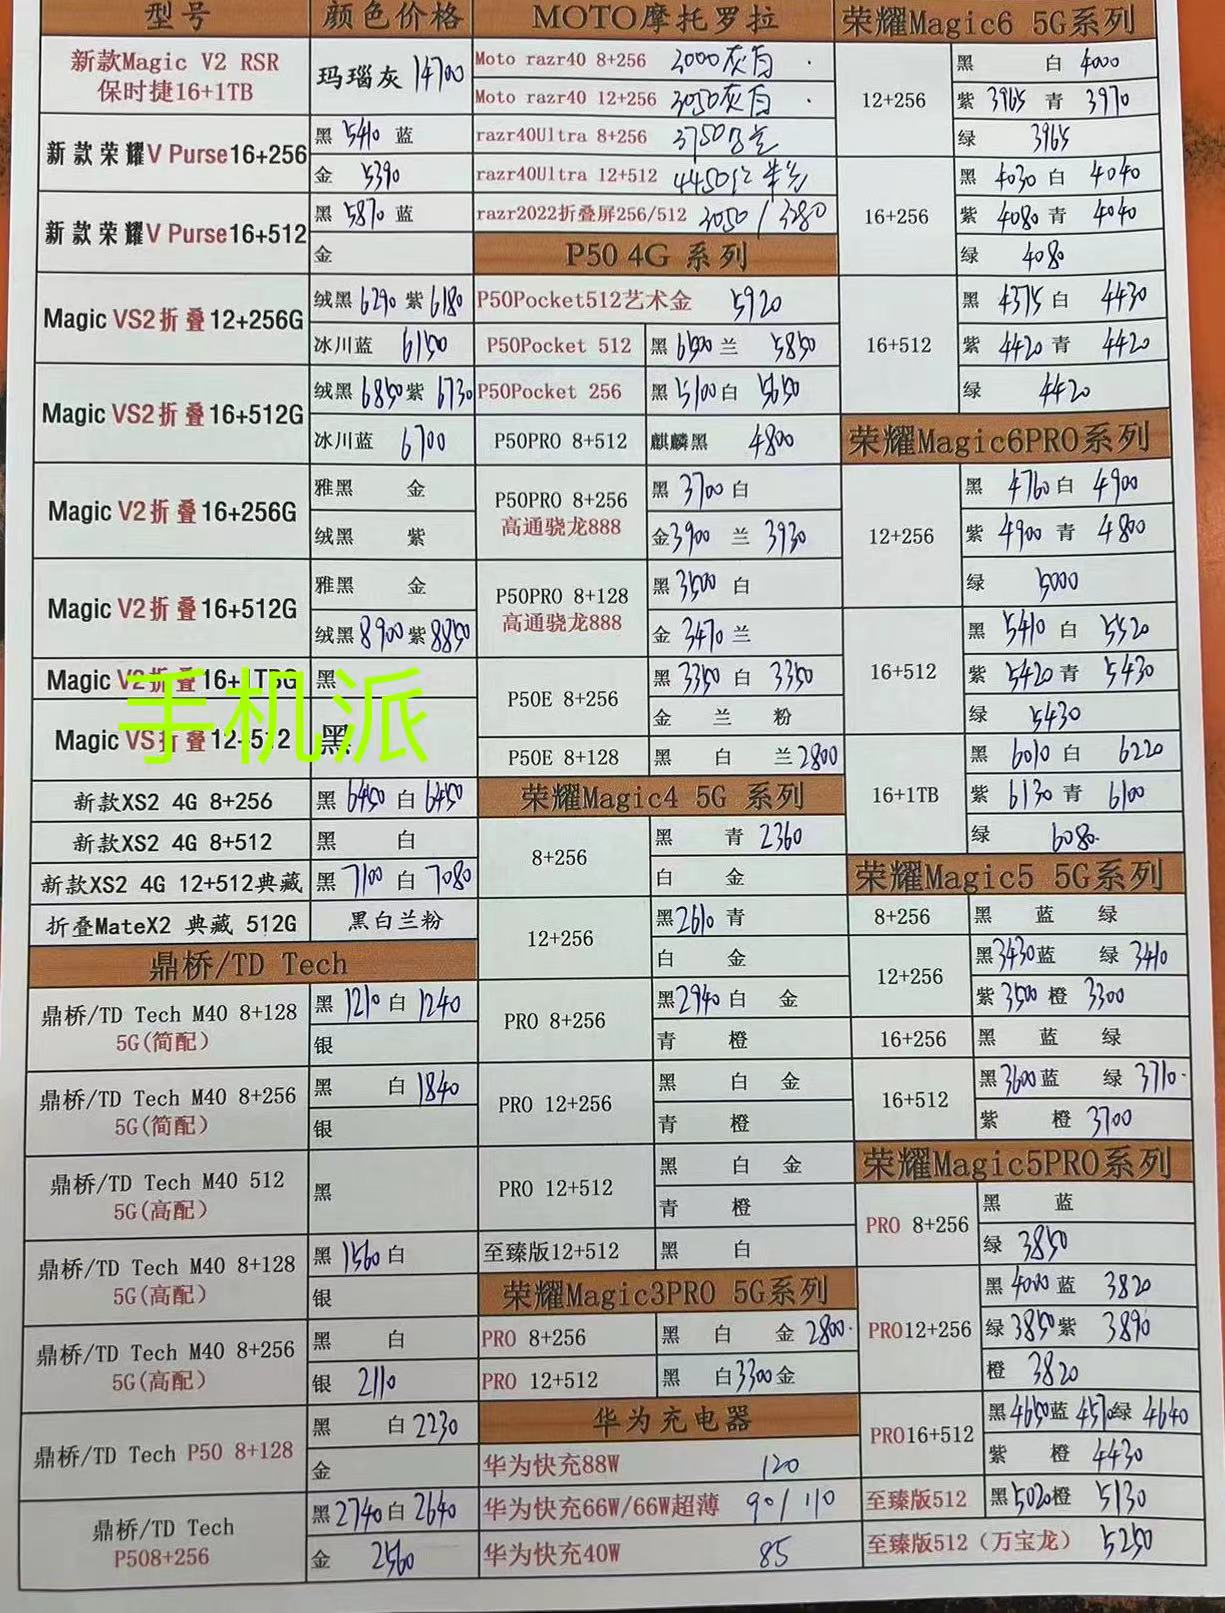 型号 颜色价格
新款Magic V2 RSR
保时捷16+1TB
玛瑙灰 14700
新款荣耀V Purse16+256
黑 5410 蓝
金 5390
新款荣耀V Purse16+512
黑 5870 蓝
金
Magic VS2折叠12+256G
绒黑 6290 紫 6180
冰川蓝 6150
Magic VS2折叠16+512G
绒黑 6850 紫 6730
冰川蓝 6700
Magic V2折叠16+256G
雅黑 金
绒黑 紫
Magic V2折叠16+512G
雅黑 金
绒黑 8900 紫 8850
Magic V2折叠16+1TBG 黑
Magic VS折叠12+512 黑
手机派
新款XS2 4G 8+256 黑 6450 白 6450
新款XS2 4G 8+512 黑 白
新款XS2 4G 12+512典藏 黑 7100 白 7080
折叠MateX2 典藏 512G 黑白兰粉
鼎桥/TD Tech
鼎桥/TD Tech M40 8+128
5G(简配)
黑 1210 白 1240
银
鼎桥/TD Tech M40 8+256
5G(简配)
黑 白 1840
银
鼎桥/TD Tech M40 512
5G(高配)
黑
鼎桥/TD Tech M40 8+128
5G(高配)
黑 1560 白
银
鼎桥/TD Tech M40 8+256
5G(高配)
黑 白
银 2110
鼎桥/TD Tech P50 8+128
黑 白 2230
金
鼎桥/TD Tech
P508+256
黑 2740 白 2640
金 2560
MOTO摩托罗拉
Moto razr40 8+256 3000灰白
Moto razr40 12+256 3050灰白
razr40Ultra 8+256 3750
razr40Ultra 12+512 4450
razr2022折叠屏256/512 3050 / 3280
P50 4G 系列
P50Pocket512艺术金 5920
P50Pocket 512 黑 6500 兰 5850
P50Pocket 256 黑 5100 白 5650
P50PRO 8+512 麒麟黑 4800
P50PRO 8+256
高通骁龙888
黑 3700 白
金 3900 兰 3930
P50PRO 8+128
高通骁龙888
黑 3500 白
金 3470 兰
P50E 8+256
黑 3350 白 3350
金 兰 粉
P50E 8+128 黑 白 兰 2800
荣耀Magic4 5G 系列
8+256
黑 青 2360
白 金
12+256
黑 2610 青
白 金
PRO 8+256
黑 2940 白 金
青 橙
PRO 12+256
黑 白 金
青 橙
PRO 12+512
黑 白 金
青 橙
至臻版12+512 黑 白
荣耀Magic3PRO 5G系列
PRO 8+256 黑 白 金 2800
PRO 12+512 黑 白 3300 金
华为充电器
华为快充88W 120
华为快充66W/66W超薄 90/110
华为快充40W 85
荣耀Magic6 5G系列
12+256
黑 白 4000
紫 3965 青 3970
绿 3965
16+256
黑 4030 白 4040
紫 4080 青 4040
绿 4080
16+512
黑 4375 白 4430
紫 4420 青 4420
绿 4420
荣耀Magic6PRO系列
12+256
黑 4760 白 4900
紫 4900 青 4800
绿 5000
16+512
黑 5410 白 5520
紫 5420 青 5430
绿 5430
16+1TB
黑 6010 白 6220
紫 6130 青 6100
绿 6080
荣耀Magic5 5G系列
8+256 黑 蓝 绿
12+256
黑 3430 蓝 绿 3410
紫 3500 橙 3300
16+256 黑 蓝 绿
16+512
黑 3600 蓝 绿 3710
紫 橙 3700
荣耀Magic5PRO系列
PRO 8+256
黑 蓝
绿 3850
PRO12+256
黑 4000 蓝 3820
绿 3850 紫 3890
橙 3820
PRO16+512
黑 4650 蓝 4570 绿 4640
紫 橙 4430
至臻版512 黑 5020 橙 5130
至臻版512（万宝龙） 5250